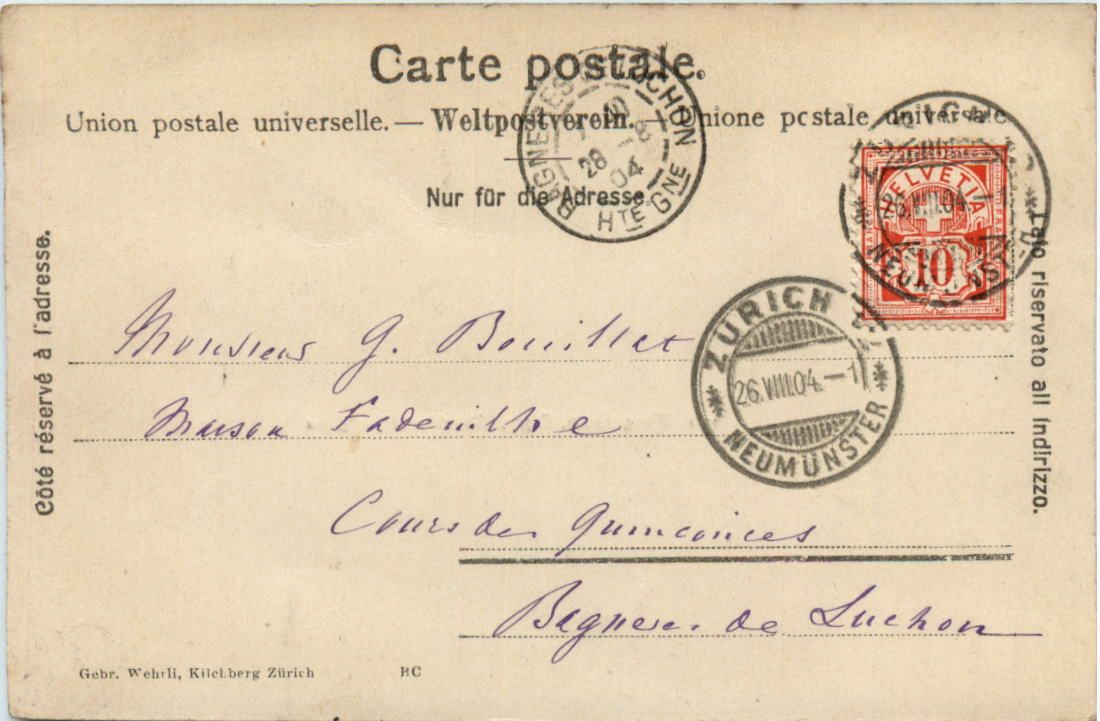 Carte postale.
Union postale universelle. — Weltpostverein. — Unione postale universale
Nur für die Adresse.
BAGNERES DE LUCHON
28 8 04
HTE GNE
HELVETIA
10
26.VIII.04.
ZÜRICH
26.VIII.04.—1
NEUMÜNSTER
Côté réservé à l'adresse.
Lato riservato all indirizzo.
Monsieur G. Bouillet
Maison
Cours des Quinconces
Bagneres de Luchon
Gebr. Wehrli, Kilchberg Zürich